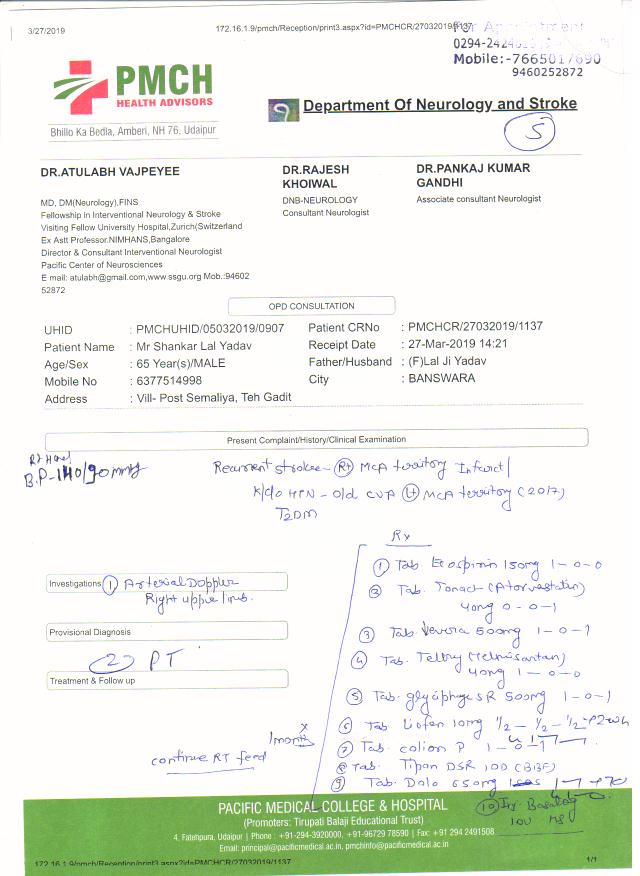 3/27/2019
172.16.1.9/pmch/Reception/print3.aspx?id=PMCHCR/27032019/1137
For Appointment
Mobile:-7665017690
9460252872
PMCH
HEALTH ADVISORS
Bhillo Ka Bedia, Amberi, NH 76, Udaipur
Department Of Neurology and Stroke
5
DR.ATULABH VAJPEYEE
MD, DM(Neurology),FINS
Fellowship in Interventional Neurology & Stroke
Visiting Fellow University Hospital,Zurich(Switzerland
Ex Astt Professor.NIMHANS,Bangalore
Director & Consultant Interventional Neurologist
Pacific Center of Neurosciences
E mail: atulabh@gmail.com,www.ssgu.org Mob.:94602
52872
DR.RAJESH
KHOIWAL
DNB-NEUROLOGY
Consultant Neurologist
DR.PANKAJ KUMAR
GANDHI
Associate consultant Neurologist
OPD CONSULTATION
UHID : PMCHUHID/05032019/0907
Patient Name : Mr Shankar Lal Yadav
Age/Sex : 65 Year(s)/MALE
Mobile No : 6377514998
Address : Vill- Post Semaliya, Teh Gadit
Patient CRNo : PMCHCR/27032019/1137
Receipt Date : 27-Mar-2019 14:21
Father/Husband : (F)Lal Ji Yadav
City : BANSWARA
Present Complaint/History/Clinical Examination
Rt Hand
B.P-140/90mmHg
Recurrent stroke - Rt MCA territory Infarct
K/c/o HTN - old CVA Lt MCA territory (2017)
T2DM
Investigations 1 Arterial Doppler
Right upper limb.
Provisional Diagnosis
2) PT
Treatment & Follow up
x 1 month
continue RT feed
Rx
1 Tab. Ecospirin 150mg 1-0-0
2 Tab. Tonact (Atorvastatin)
40mg 0-0-1
3 Tab. Levera 500mg 1-0-1
4 Tab. Telby (Telmisartan)
40mg 1-0-0
5 Tab. glyciphage SR 500mg 1-0-1
6 Tab Liofen 10mg 1/2-1/2-1/2
7 Tab. colion P 1-0-1
8 Tab. Tipan DSR 1OD (BBF)
9 Tab. Dolo 650mg
10 Inj. Basalog
10U HS
PACIFIC MEDICAL COLLEGE & HOSPITAL
(Promoters: Tirupati Balaji Educational Trust)
4, Fatehpura, Udaipur | Phone : +91-294-3920000, +91-96729 78590 | Fax: +91 294 2491508
Email: principal@pacificmedical.ac.in, pmchinfo@pacificmedical.ac.in
172.16.1.9/pmch/Reception/print3.aspx?id=PMCHCR/27032019/1137
1/1